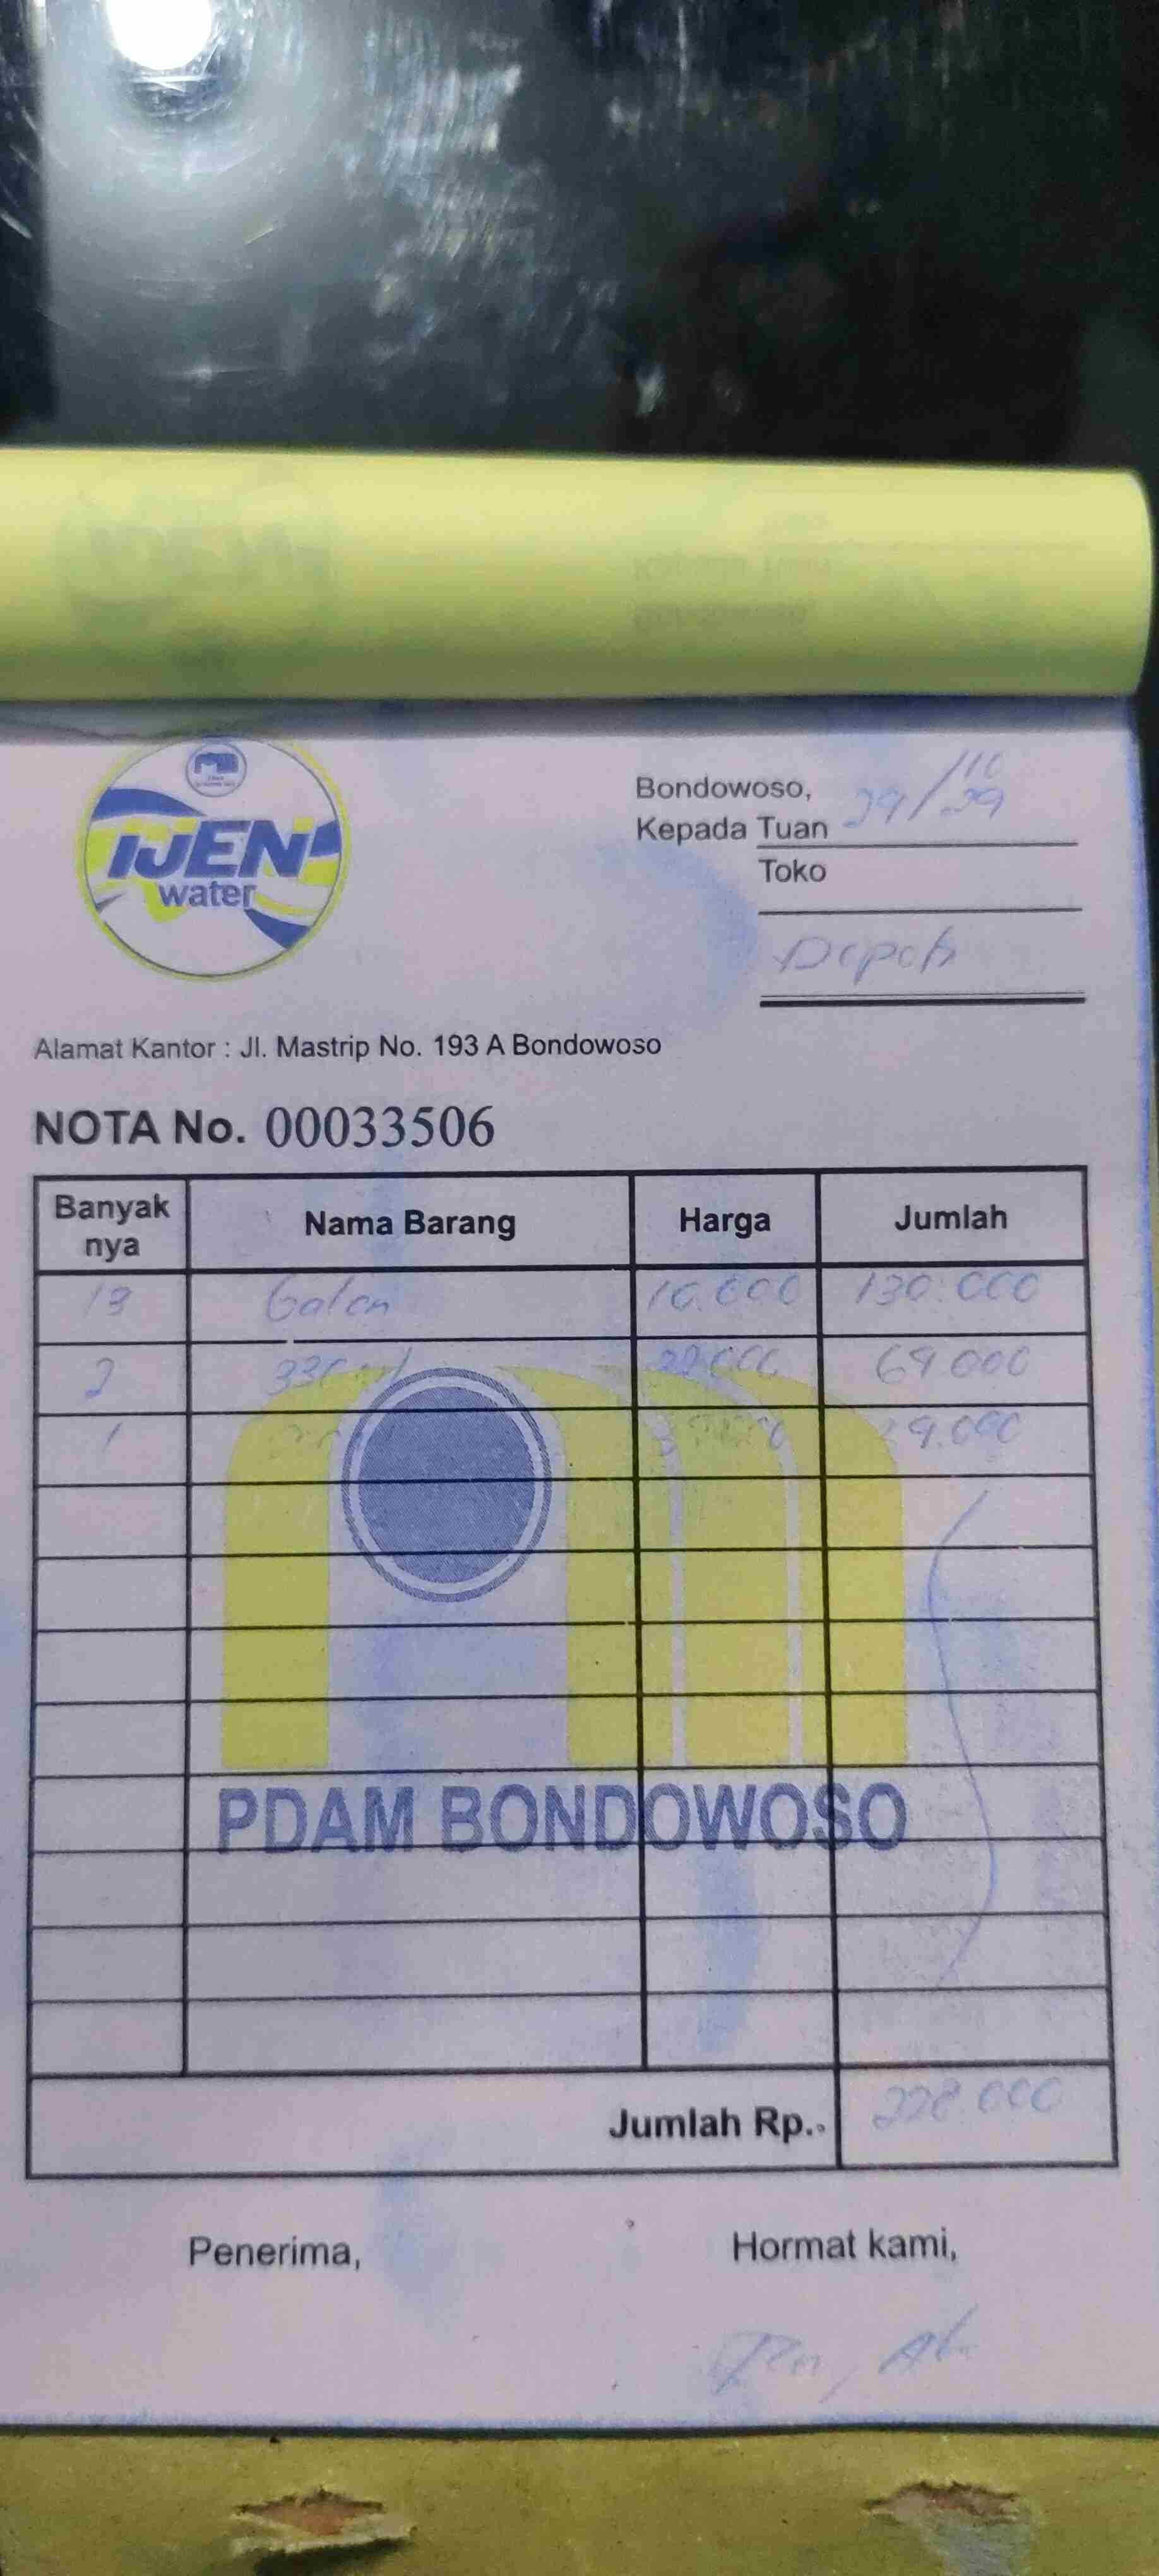 IJEN
water
Bondowoso,
Kepada Tuan
Toko
Depot
Alamat Kantor : Jl. Mastrip No. 193 A Bondowoso
NOTA No. 00033506
Banyak nya Nama Barang Harga Jumlah
13 Galon 10.000 130.000
2 330 ml 69.000
1 29.000
PDAM BONDOWOSO
Jumlah Rp. 228.000
Penerima, Hormat kami,